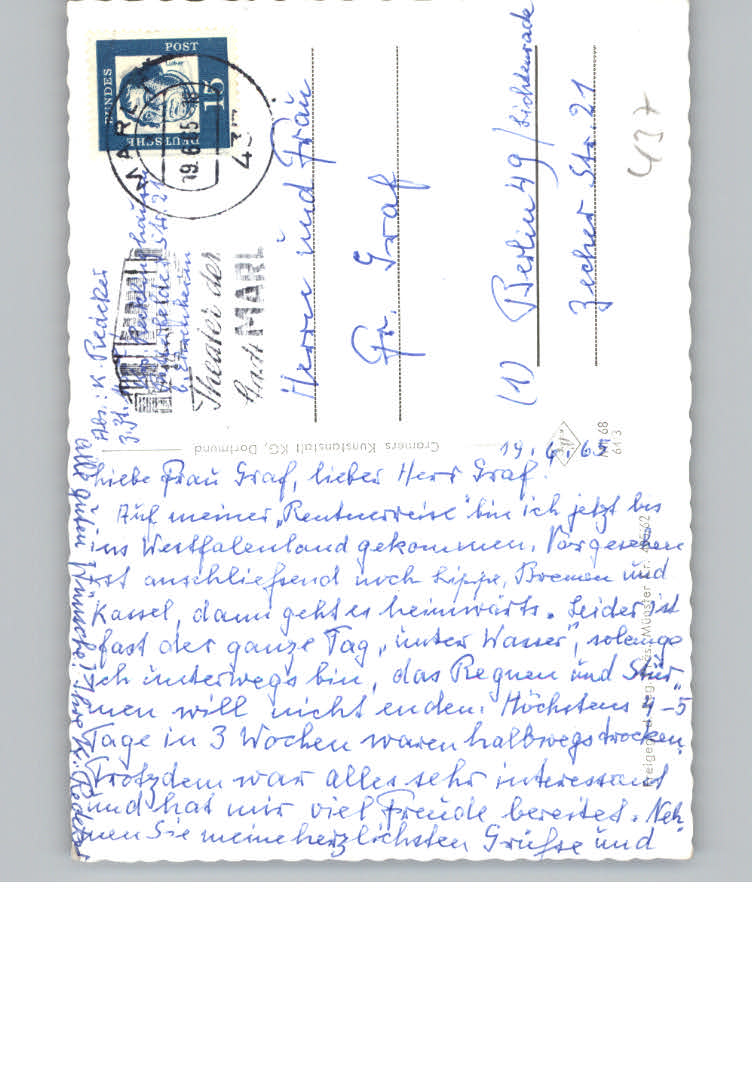 DEUTSCHE
BUNDES
POST
15
Luther
MARL
19.6.65
437
Theater der
Stadt MARL
Abs.: K. Redeker
Herrn und Frau
Fr. Graf
(1) Berlin 49 / Lichtenrade
Zecher Str. 21
437
Cramers Kunstanstalt KG, Dortmund
68
61 3
19.6.65
Liebe Frau Graf, lieber Herr Graf!
Auf meiner „Rentnerreise" bin ich jetzt bis
ins Westfalenland gekommen. Vorgesehen
ist anschließend noch Lippe, Bremen und
Kassel, dann geht es heimwärts. Leider ist
fast der ganze Tag „unter Wasser", solange
ich unterwegs bin, das Regnen und Stür-
men will nicht enden. Höchstens 4-5
Tage in 3 Wochen waren halbwegs trocken.
Trotzdem war alles sehr interessant
und hat mir viel Freude bereitet. Neh-
men Sie meine herzlichsten Grüße und
alle guten Wünsche! Ihre K. Redeker